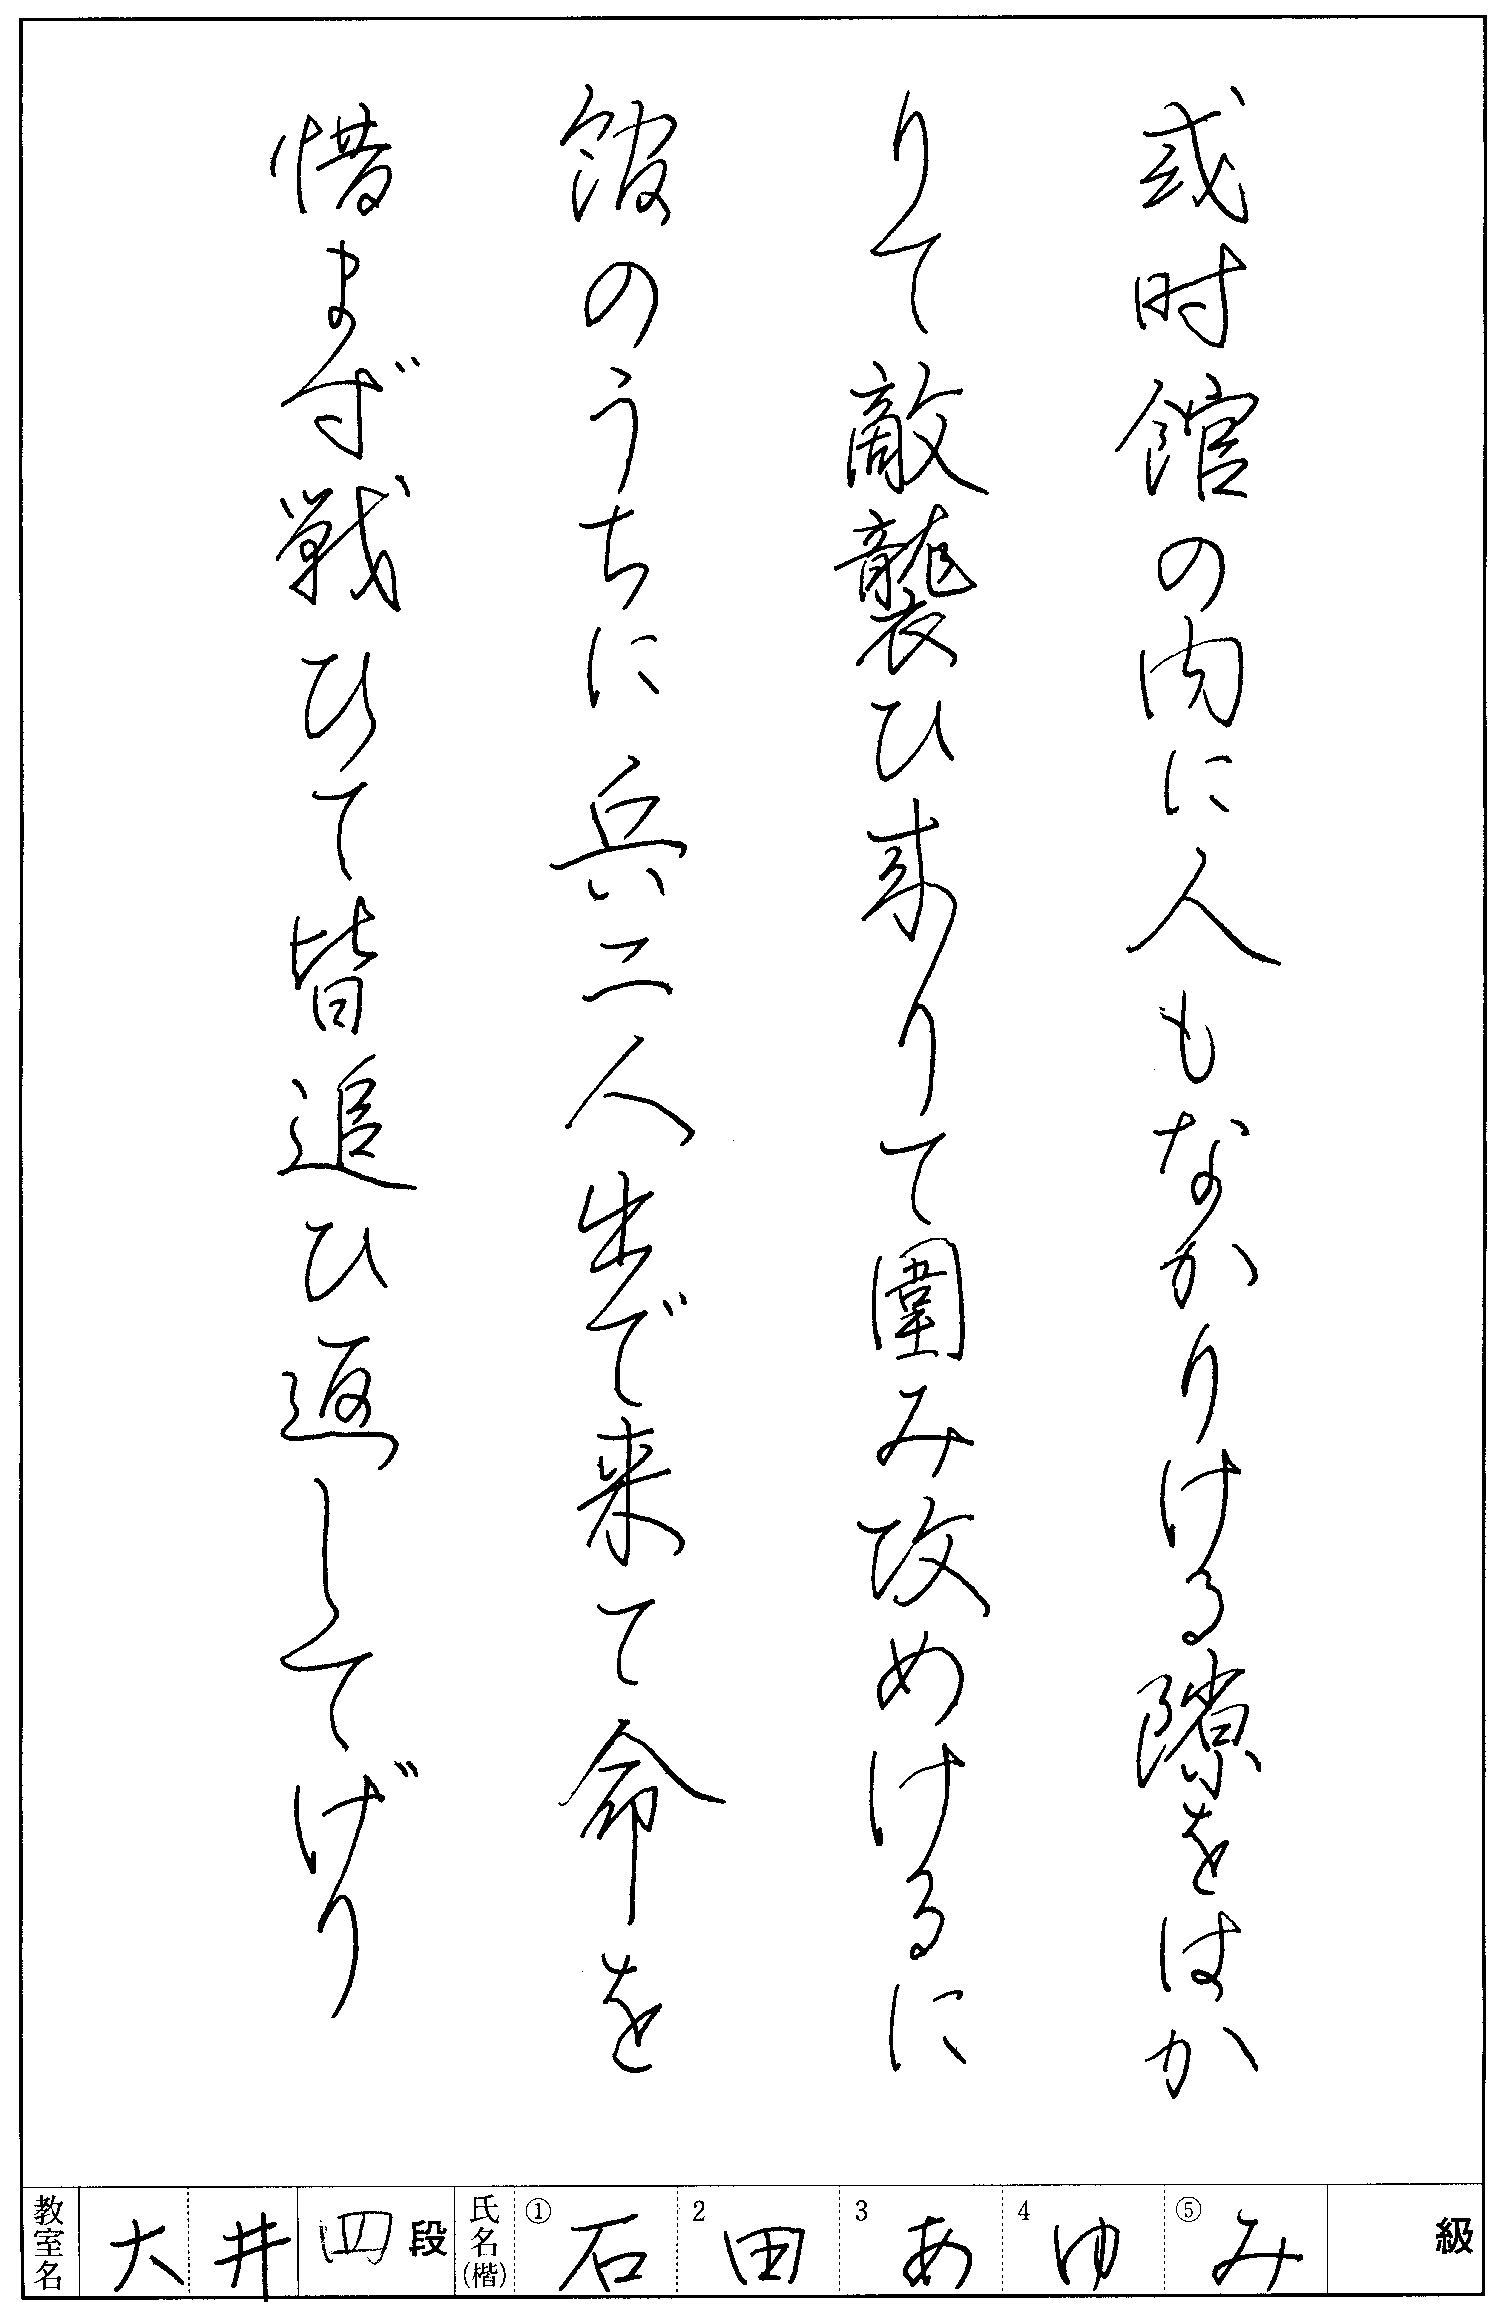 或時館の内に人もなかりける隙をはか
りて敵襲ひ来りて圍み攻めけるに
館のうちに兵二人出で来て命を
惜まず戦ひて皆追ひ返してげり
教室名 大井 四段 氏名(楷) ①石 2田 3あ 4ゆ ⑤み 級